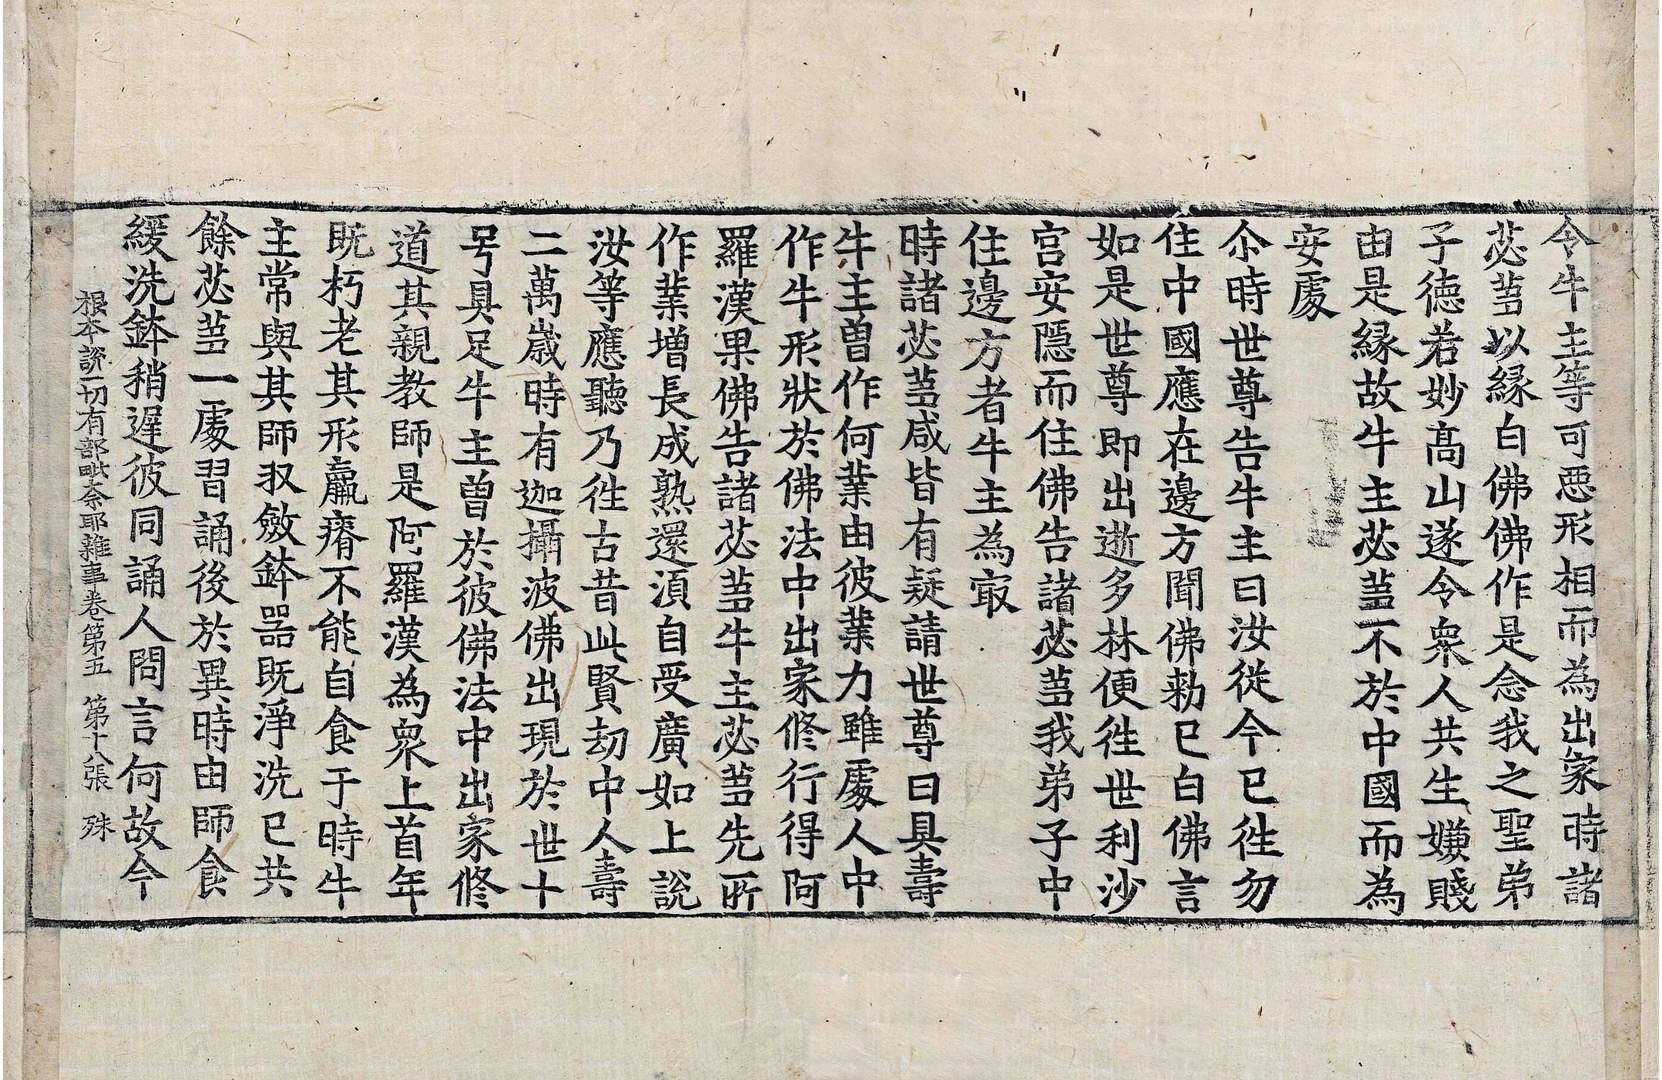 令牛主等可惡形相而為出家時諸
苾芻以緣白佛佛作是念我之聖弟
子德若妙高山遂令衆人共生嫌賤
由是緣故牛主苾芻不於中國而為
安處
尒時世尊告牛主曰汝從今已往勿
住中國應在邊方聞佛勑已白佛言
如是世尊即出逝多林便往世利沙
宮安隱而住佛告諸苾芻我弟子中
住邊方者牛主為冣
時諸苾芻咸皆有疑請世尊曰具壽
牛主曽作何業由彼業力雖處人中
作牛形狀於佛法中出家修行得阿
羅漢果佛告諸苾芻牛主苾芻先所
作業增長成熟還湏自受廣如上說
汝等應聽乃往古昔此賢劫中人壽
二萬歲時有迦攝波佛出現於世十
号具足牛主曽於彼佛法中出家修
道其親教師是阿羅漢為衆上首年
既朽老其形羸瘠不能自食于時牛
主常與其師収斂鉢器既淨洗已共
餘苾芻一處習誦後於異時由師食
緩洗鉢稍遲彼同誦人問言何故今
根本說一切有部毗奈耶雜事卷第五 第十八張 殊